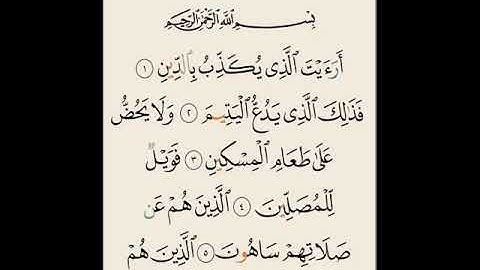 بِسْمِ اللَّهِ الرَّحْمَٰنِ الرَّحِيمِ
أَرَءَيْتَ الَّذِى يُكَذِّبُ بِالدِّينِ ١
فَذَٰلِكَ الَّذِى يَدُعُّ الْيَتِيمَ ٢ وَلَا يَحُضُّ
عَلَىٰ طَعَامِ الْمِسْكِينِ ٣ فَوَيْلٌ
لِّلْمُصَلِّينَ ٤ الَّذِينَ هُمْ عَن
صَلَاتِهِمْ سَاهُونَ ٥ الَّذِينَ هُمْ